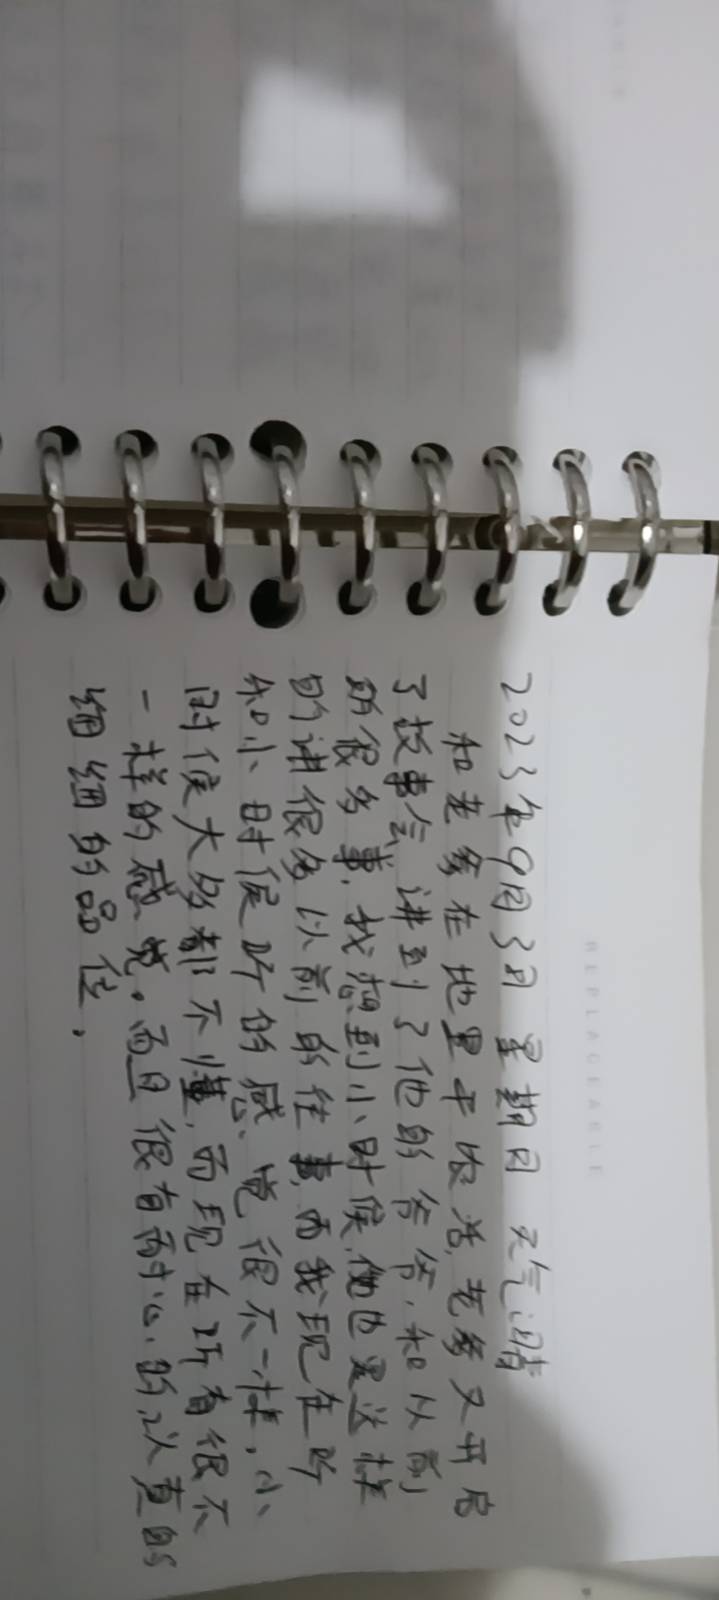 REPLACEABLE
2023年9月3日 星期日 天气晴
和老爹在地里干农活,老爹又开启
了故事会,讲到了他的爷爷,和以前
的很多事,我想到小时候,他也是这样
的讲很多以前的往事,而我现在听
和小时候听的感觉很不一样,小
时候大多都不懂,而现在听有很不
一样的感觉。而且很有耐心,所以真的
细细的品位。